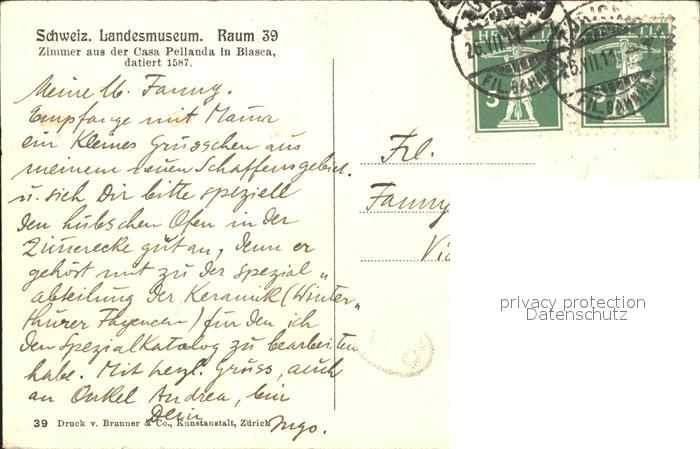 Schweiz. Landesmuseum. Raum 39
Zimmer aus der Casa Pellanda in Biasca,
datiert 1587.
Meine lb. Fanny.
Empfange mit Mama
ein kleines Grüsschen aus
meinem neuen Schaffensgebiet.
u. sieh Dir bitte speziell
den hübschen Ofen in der
Zimerecke gut an, denn er
gehört mit zu der Spezial„
abteilung der Keramik (Winter„
thurer Fayencen) für den ich
den Spezialkatalog zu bearbeiten
habe. Mit herzl. Gruss, auch
an Onkel Andrea, bin
Dein
Ingo.
39 Druck v. Brunner & Co., Kunstanstalt, Zürich
HELVETIA
5
26.VII.11
FIL. BAHNH
26.VII.11
FIL. BAHNH
Frl.
Fanny
Via
privacy protection
Datenschutz